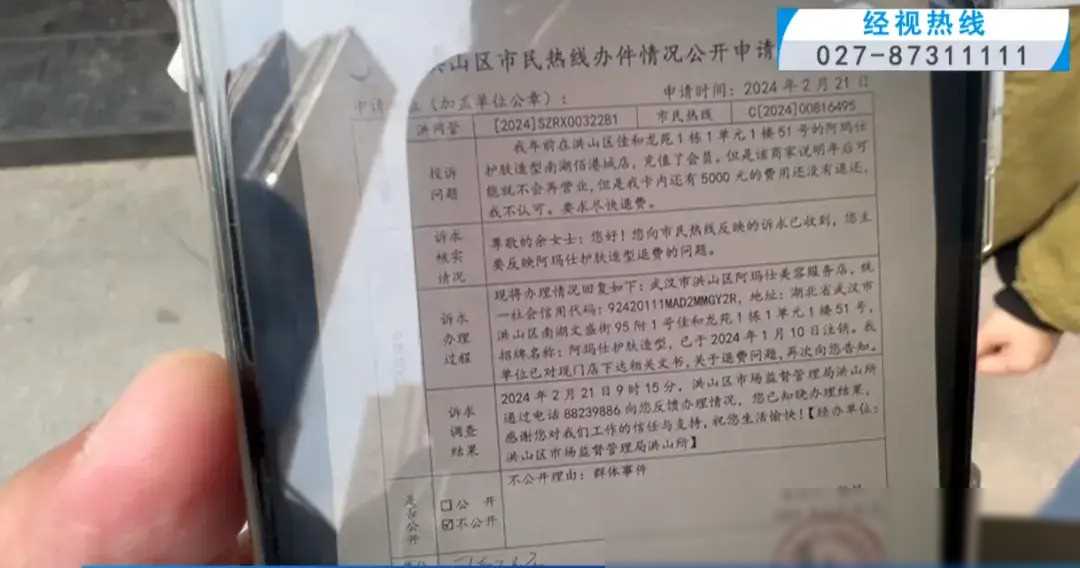 经视热线
027-87311111
洪山区市民热线办件情况公开申请
申请 (加盖单位公章): 申请时间: 2024年2月21日
洪网管 [2024]SZRX0032281 市民热线 C[2024]00816495
投诉问题
我年前在洪山区佳和龙苑1栋1单元1楼51号的阿玛仕
护肤造型南湖佰港城店,充值了会员。但是该商家说明年后可
能就不会再营业,但是我卡内还有5000元的费用还没有退还,
我不认可。要求尽快退费。
诉求核实情况
尊敬的余女士:您好!您向市民热线反映的诉求已收到,您主
要反映阿玛仕护肤造型退费的问题。
诉求办理过程
现将办理情况回复如下:武汉市洪山区阿玛仕美容服务店,统
一社会信用代码:92420111MAD2MMGY2R,地址:湖北省武汉市
洪山区南湖文盛街95附1号佳和龙苑1栋1单元1楼51号,
招牌名称:阿玛仕护肤造型,已于2024年1月10日注销。我
单位已对现门店下达相关文书,关于退费问题,再次向您告知。
诉求调查结果
2024年2月21日9时15分,洪山区市场监督管理局洪山所
通过电话88239886向您反馈办理情况,您已知晓办理结果,
感谢您对我们工作的信任与支持,祝您生活愉快!【经办单位:
洪山区市场监督管理局洪山所】
是否公开
□公开
☑不公开
不公开理由:群体事件